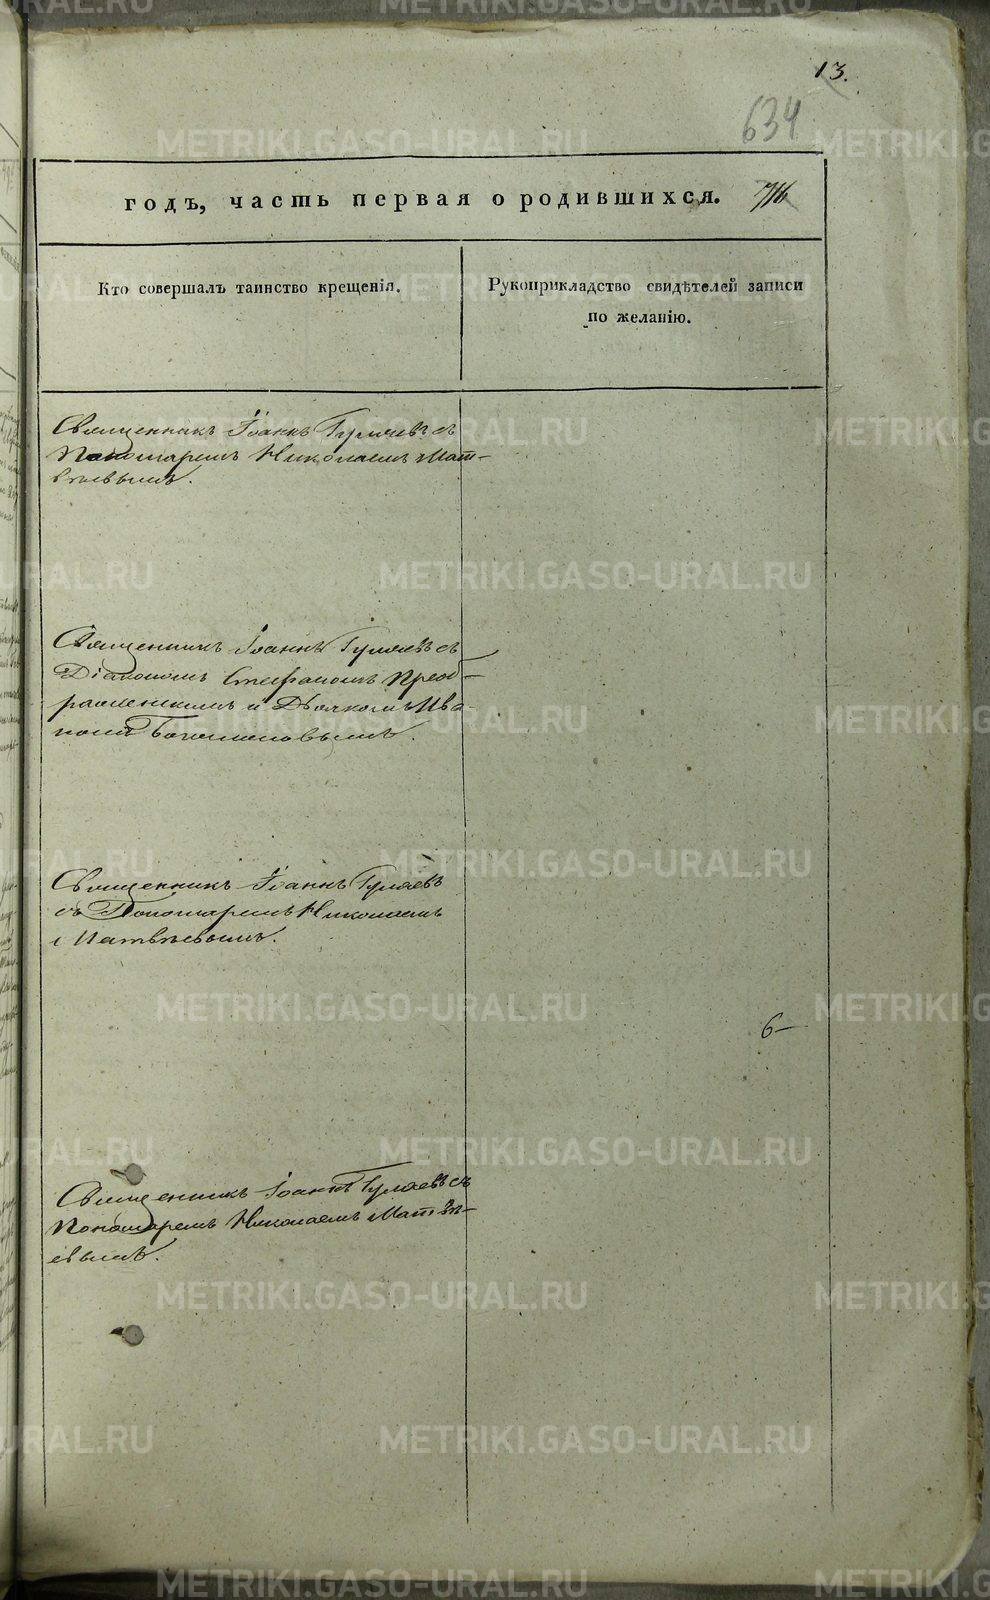 13.
634
годъ, часть первая о родившихся.
Кто совершалъ таинство крещенія.
Рукоприкладство свидѣтелей записи
по желанію.
Священникъ Іоаннъ Гуляевъ съ
Пономаремъ Николаемъ Мат-
вѣевымъ.
Священникъ Іоаннъ Гуляевъ съ
Діакономъ Стефаномъ Преоб-
раженскимъ и Дьячкомъ Ива-
номъ
Священникъ Іоаннъ Гуляевъ
съ Пономаремъ Николаемъ
Матвѣевымъ.
6-
Священникъ Іоаннъ Гуляевъ съ
Пономаремъ Николаемъ Матвѣ-
евымъ.
METRIKI.GASO-URAL.RU